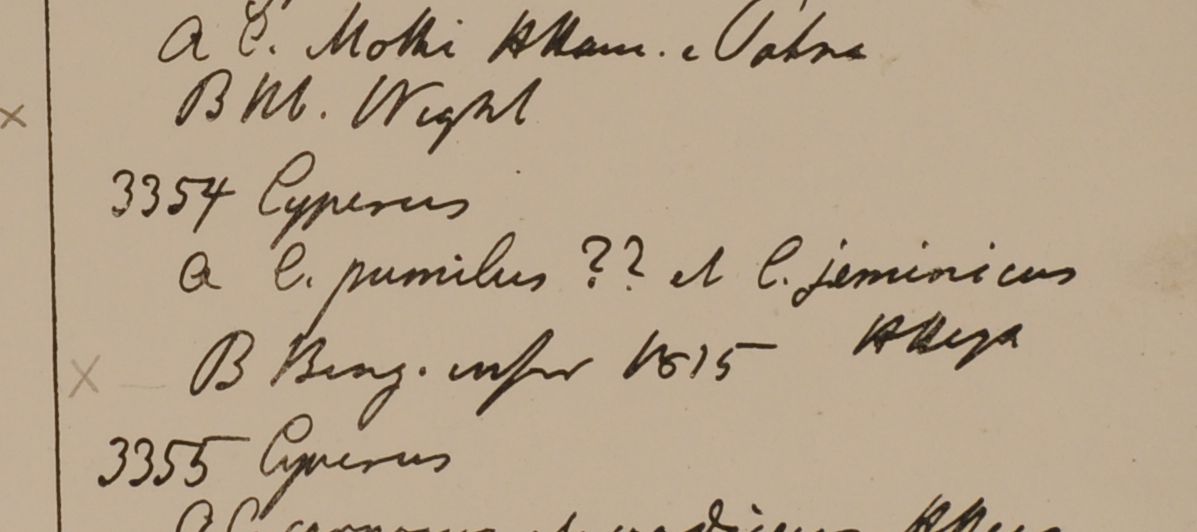 a C. Mothi HHam. e Patna
B Hb. Wight
3354 Cyperus
a C. pumilus ?? et C. jeminicus
B Beng. infer 1815
3355 Cyperus
a C.